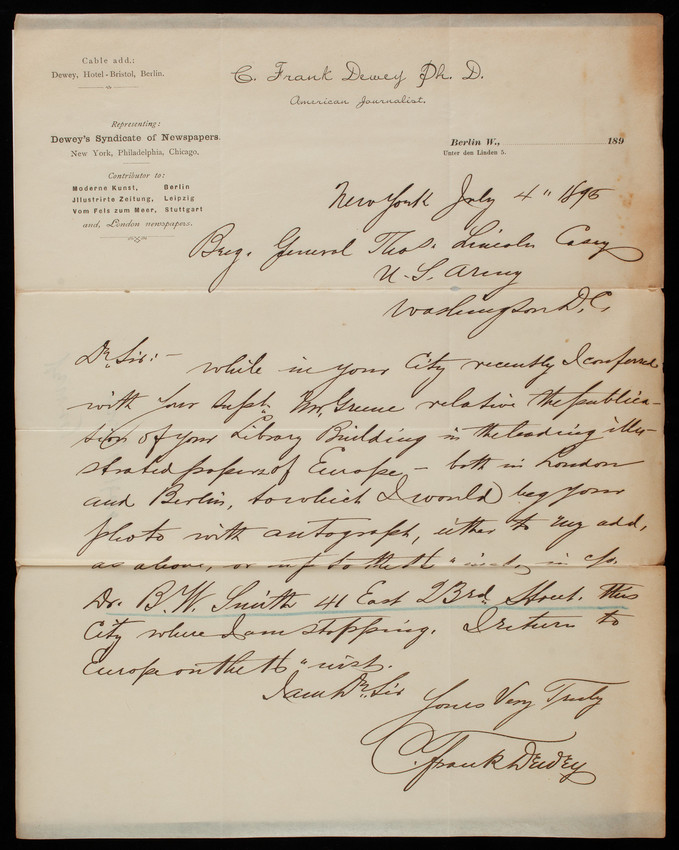 Cable add.:
Dewey, Hotel-Bristol, Berlin.
Representing:
Dewey's Syndicate of Newspapers.
New York, Philadelphia, Chicago.
Contributor to:
Moderne Kunst, Berlin
Jllustrirte Zeitung, Leipzig
Vom Fels zum Meer, Stuttgart
and, London newspapers.
C. Frank Dewey Ph. D.
American Journalist.
Berlin W., 189
Unter den Linden 5.
New York July 4" 1895
Brig. General Thos. Lincoln Casey
U. S. Army
Washington D.C.
Dr. Sir:- while in your City recently I conferred
with your Supt. Mr. Greene relative the publica-
tion of your Library Building in the leading illu-
strated papers of Europe, - both in London
and Berlin, to which I would beg your
photo with autograph, either to my add,
as above, or up to the "inst, in c/o
Dr. B. W. Smith 41 East 23rd. Street. this
City where I am stopping. I return to
Europe on the "inst.
I am Dr. Sir Yours Very Truly
C. Frank Dewey